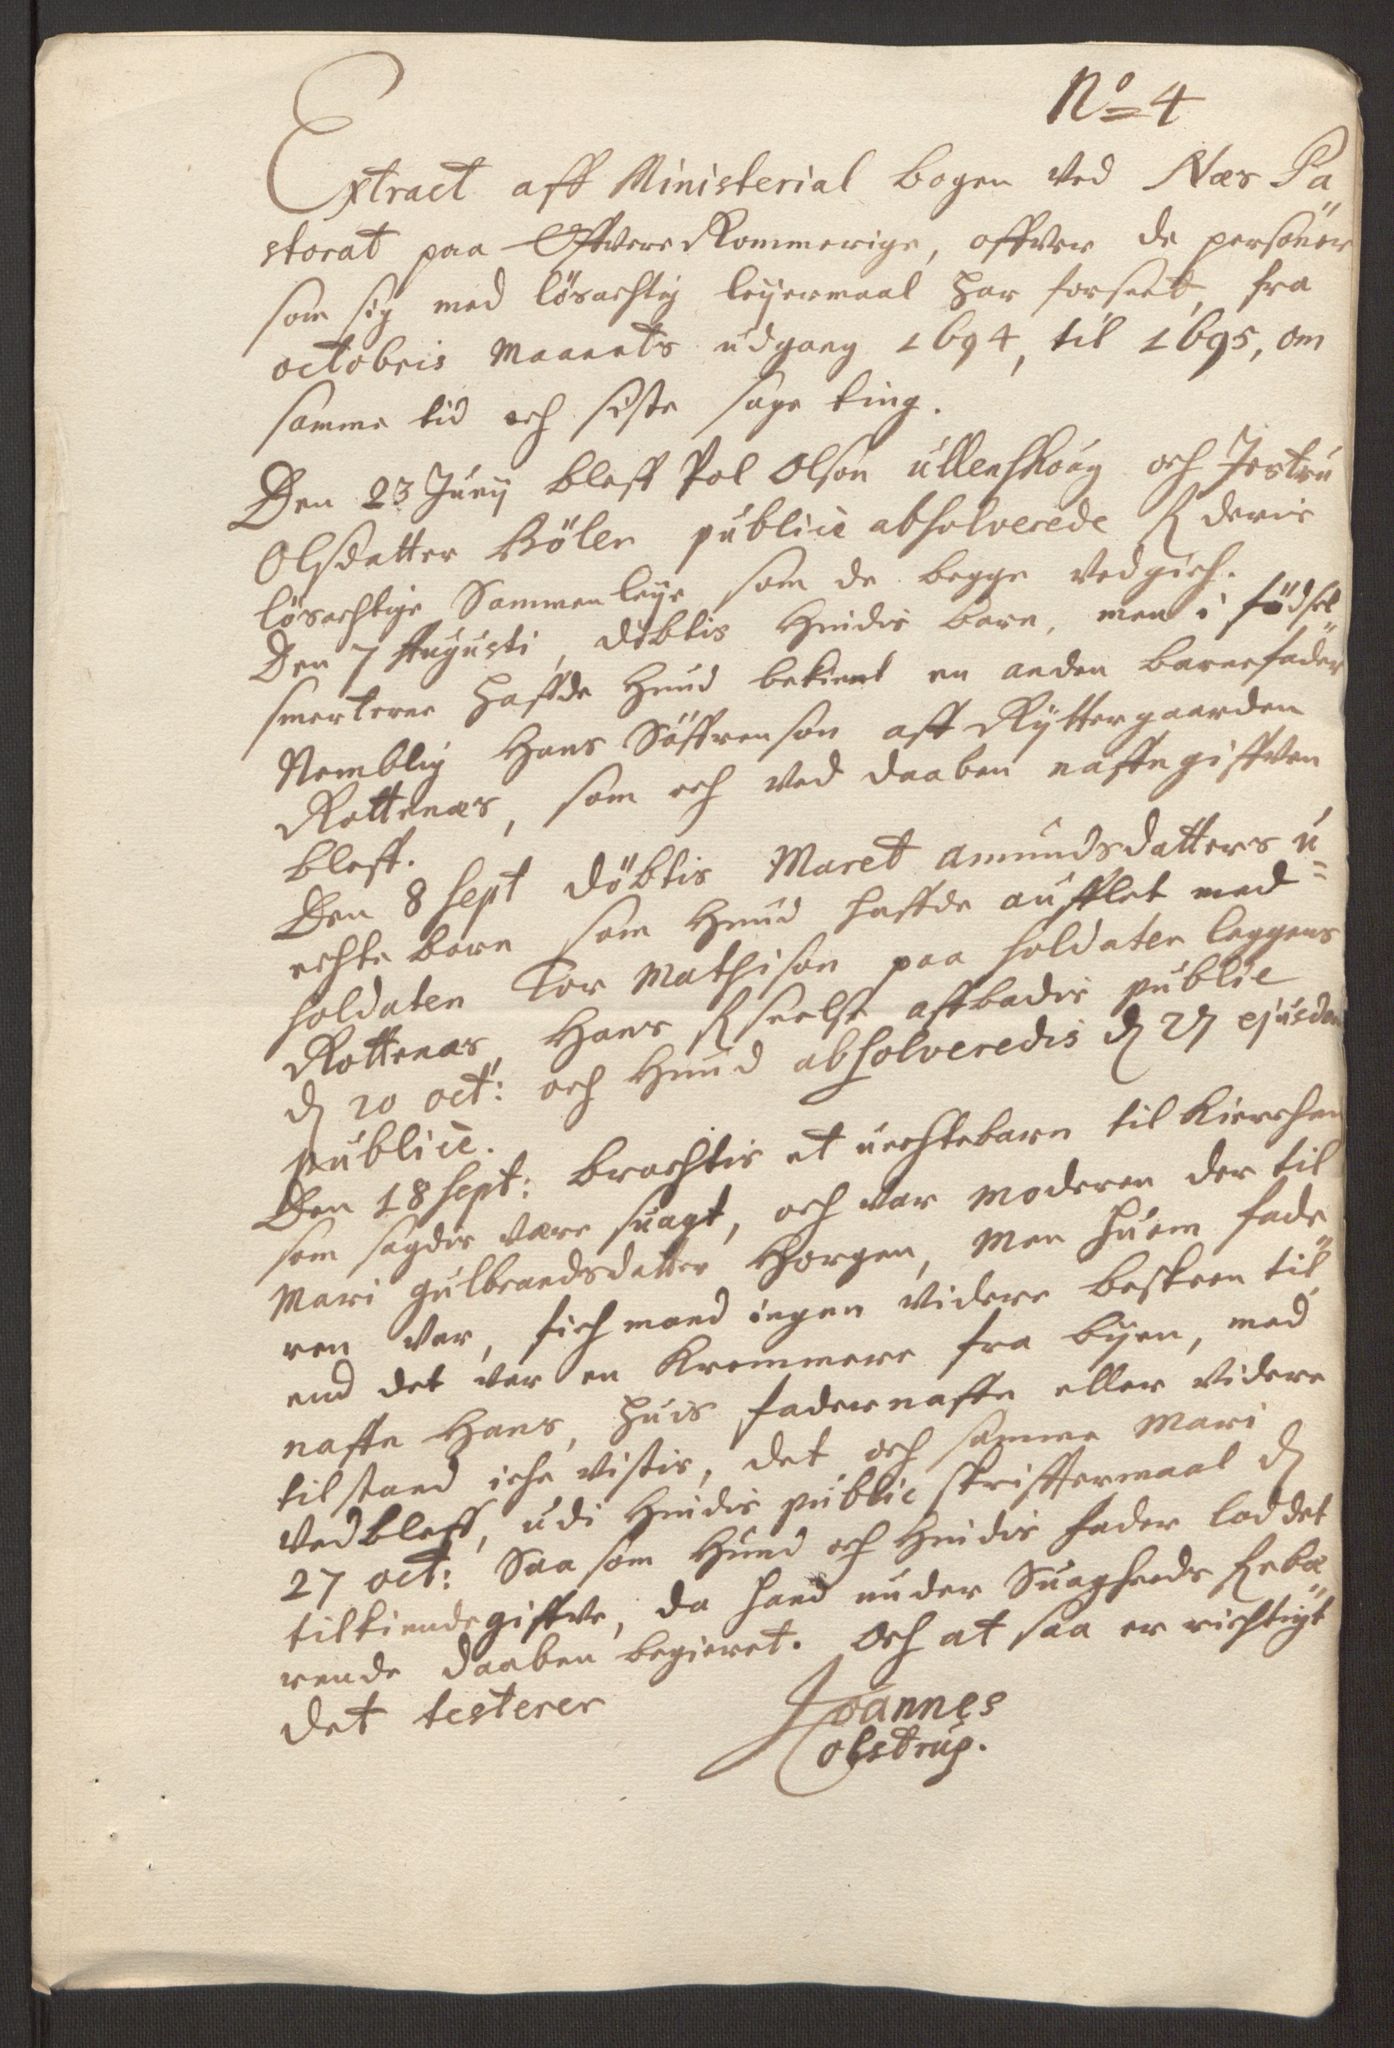 No 4
Extract aff Ministerial bogen ved Næs Pa
storat paa Øffvere Rommerige, offver de personer
som sig med lösachtig leyermaal har forseet, fra
octobris Maanets udgang 1694, til 1695, om
samme tid och siste sage ting.
Den 23 Junij bleff Pol Olson Ullenshoug och Jostru
Olsdatter Bölen publicè absolverede for deris
lösachtige Sammenleije som de begge vedgich.
Den 7 Augusti, döbtis hindis barn, men i födsel
smerterne haffde hund bekient en anden barnefader
Nemblig Hans Söffrenson aff Ryttergaarden
Rottenæs, som och ved daaben naffngiffven
bleff.
Den 8 sept döbtis Maret Amundsdatters u
echte barn som hund haffde aufflet med
soldaten Tor Mathison paa soldaten leggens
Rottenæs, hans forseelse affbadis publicè
d 20 oct: och hund absolveredis d 27 ejusdem
publicè.
Den 18 sept: brachtis et uechtebarn til kierchen
som sagdis være suagt, och var moderen der til
Mari Gulbrandsdatter Horgen, Men huem fade
ren var, fich mand ingen videre beskeen til,
end det var en Kremmere fra byen, med
naffn Hans, huis fadernaffn eller videre
tilstand iche vistis, det och samme Mari
vedbleff, udi hindis public skrifftermaal d
27 oct: Saa som hund och hindis fader lod det
tilkiendegiffve, da hand under Suagheeds forbæ
rende daaben begieret. Och at saa er richtigt
det testerer
Joannes
Colstrup.